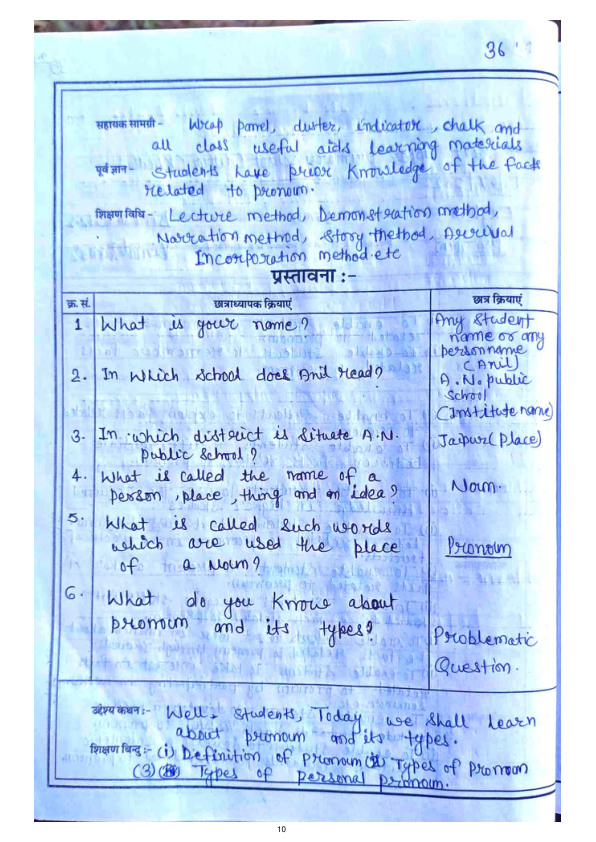 36
सहायक सामग्री - Wrap panel, duster, indicator, chalk and
all class useful aids learning materials
पूर्व ज्ञान - Students have prior knowledge of the facts
related to pronoun.
शिक्षण विधि - Lecture method, Demonstration method,
Narration method, Story method, Arrival
Incorporation method etc
प्रस्तावना :-
क्र. सं. छात्राध्यापक क्रियाएं छात्र क्रियाएं
1 What is your name? Any Student
name or any
person name
(Anil)
2. In which school does Anil read? A.N. public
School
(Institute name)
3. In which district is situate A.N. Jaipur (place)
Public School?
4. What is called the name of a Noun.
person, place, thing and an idea?
5. What is called such words
which are used the place Pronoun
of a Noun?
6. What do you know about
pronoun and its types? Problematic
Question.
उद्देश्य कथन :- Well, students, Today we shall learn
about pronoun and its types.
शिक्षण बिन्दु :- (i) Definition of pronoun Types of pronoun
(3) Types of personal pronoun.
10